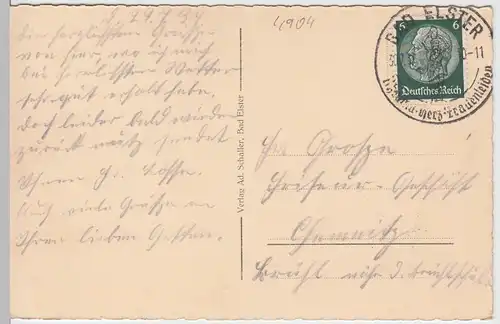 d. 29.7.34
Die herzlichsten Grüsse
von hier, wo ich mich
bei herrlichstem Wetter
sehr gut erholt habe.
Doch leider bald wieder
zurück muß sendet
Ihnen H.
Auch viele Grüße an
Ihren lieben Gatten.
4904
Verlag Ad. Schaller, Bad Elster
BAD ELSTER
-11
Herz-Frauenleiden
6
Deutsches Reich
Fr. Grosze
Friseur-Geschäft
Chemnitz
Brühl nähe d. Brühlschule